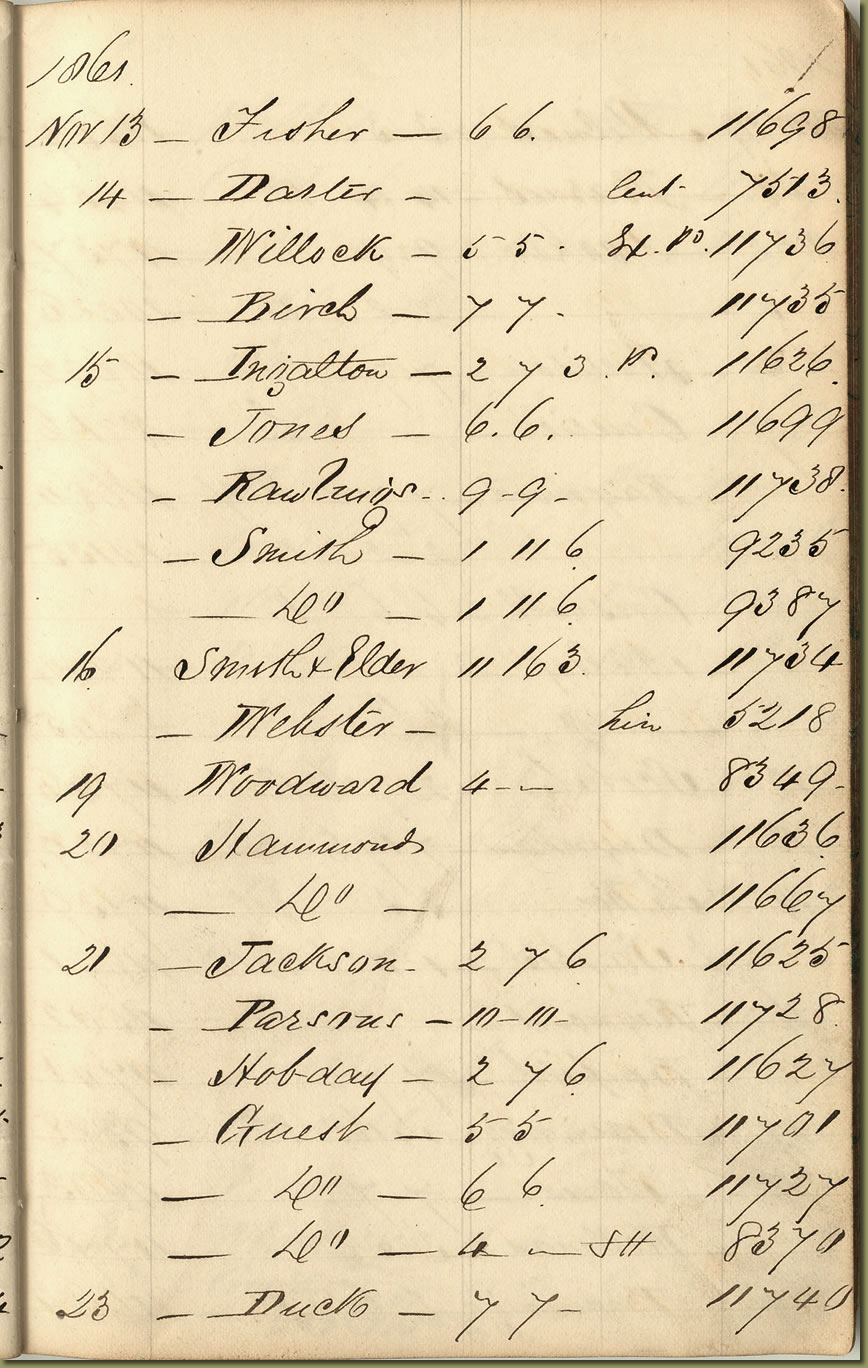 1861.
Nov 13 — Fisher — 6 6. 11698
14 — Darter — lent 7513.
— Willock — 5 5 . 11736
— Birch — 7 7 - 11735
15 — Ingalton — 2 7 3 11626
— Jones — 6. 6. 11699
— Rawlings - 9 - 9 - 11738.
— Smith — 1 11 6 9235
— Do — 1 11 6 9387
16 Smith & Elder 11 16 3. 11734
— Webster — 5218
19 Woodward 4 - — 8349 -
20 Hammonds 11636
— Do — 11667
21 — Jackson - 2 7 6 11625
— Parsons — 10 — 10 — 11728.
— Hobday — 2 7 6 11627
— Guest — 5 5 11701
— Do — 6 6 11727
— Do — 4 - — SH 8370
23 — Duck — 7 7 — 11740